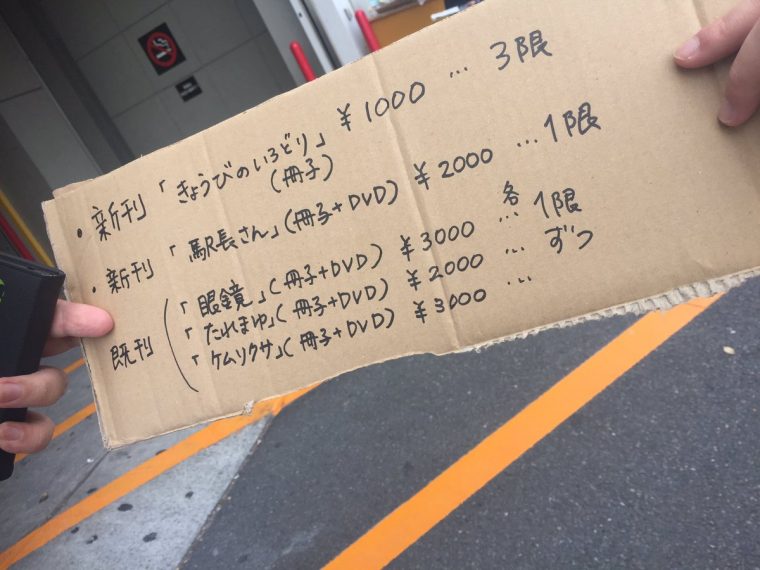 ・新刊「きょうびのいろどり」 ¥1000 … 3限
(冊子)
・新刊「駅長さん」(冊子+DVD) ¥2000 …1限
既刊
「眼鏡」(冊子+DVD) ¥3000 … 各1限ずつ
「たれまゆ」(冊子+DVD) ¥2000 …
「ケムリクサ」(冊子+DVD) ¥3000 …